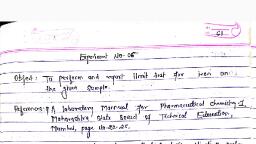 Experiment No-06
Object: To perform and report limit test for iron on
the given sample.
References: A laboratory Manual for Pharmaceutical chemistry-I
Maharashtra State Board of Technical Education,
Mumbai, page no-22-25.